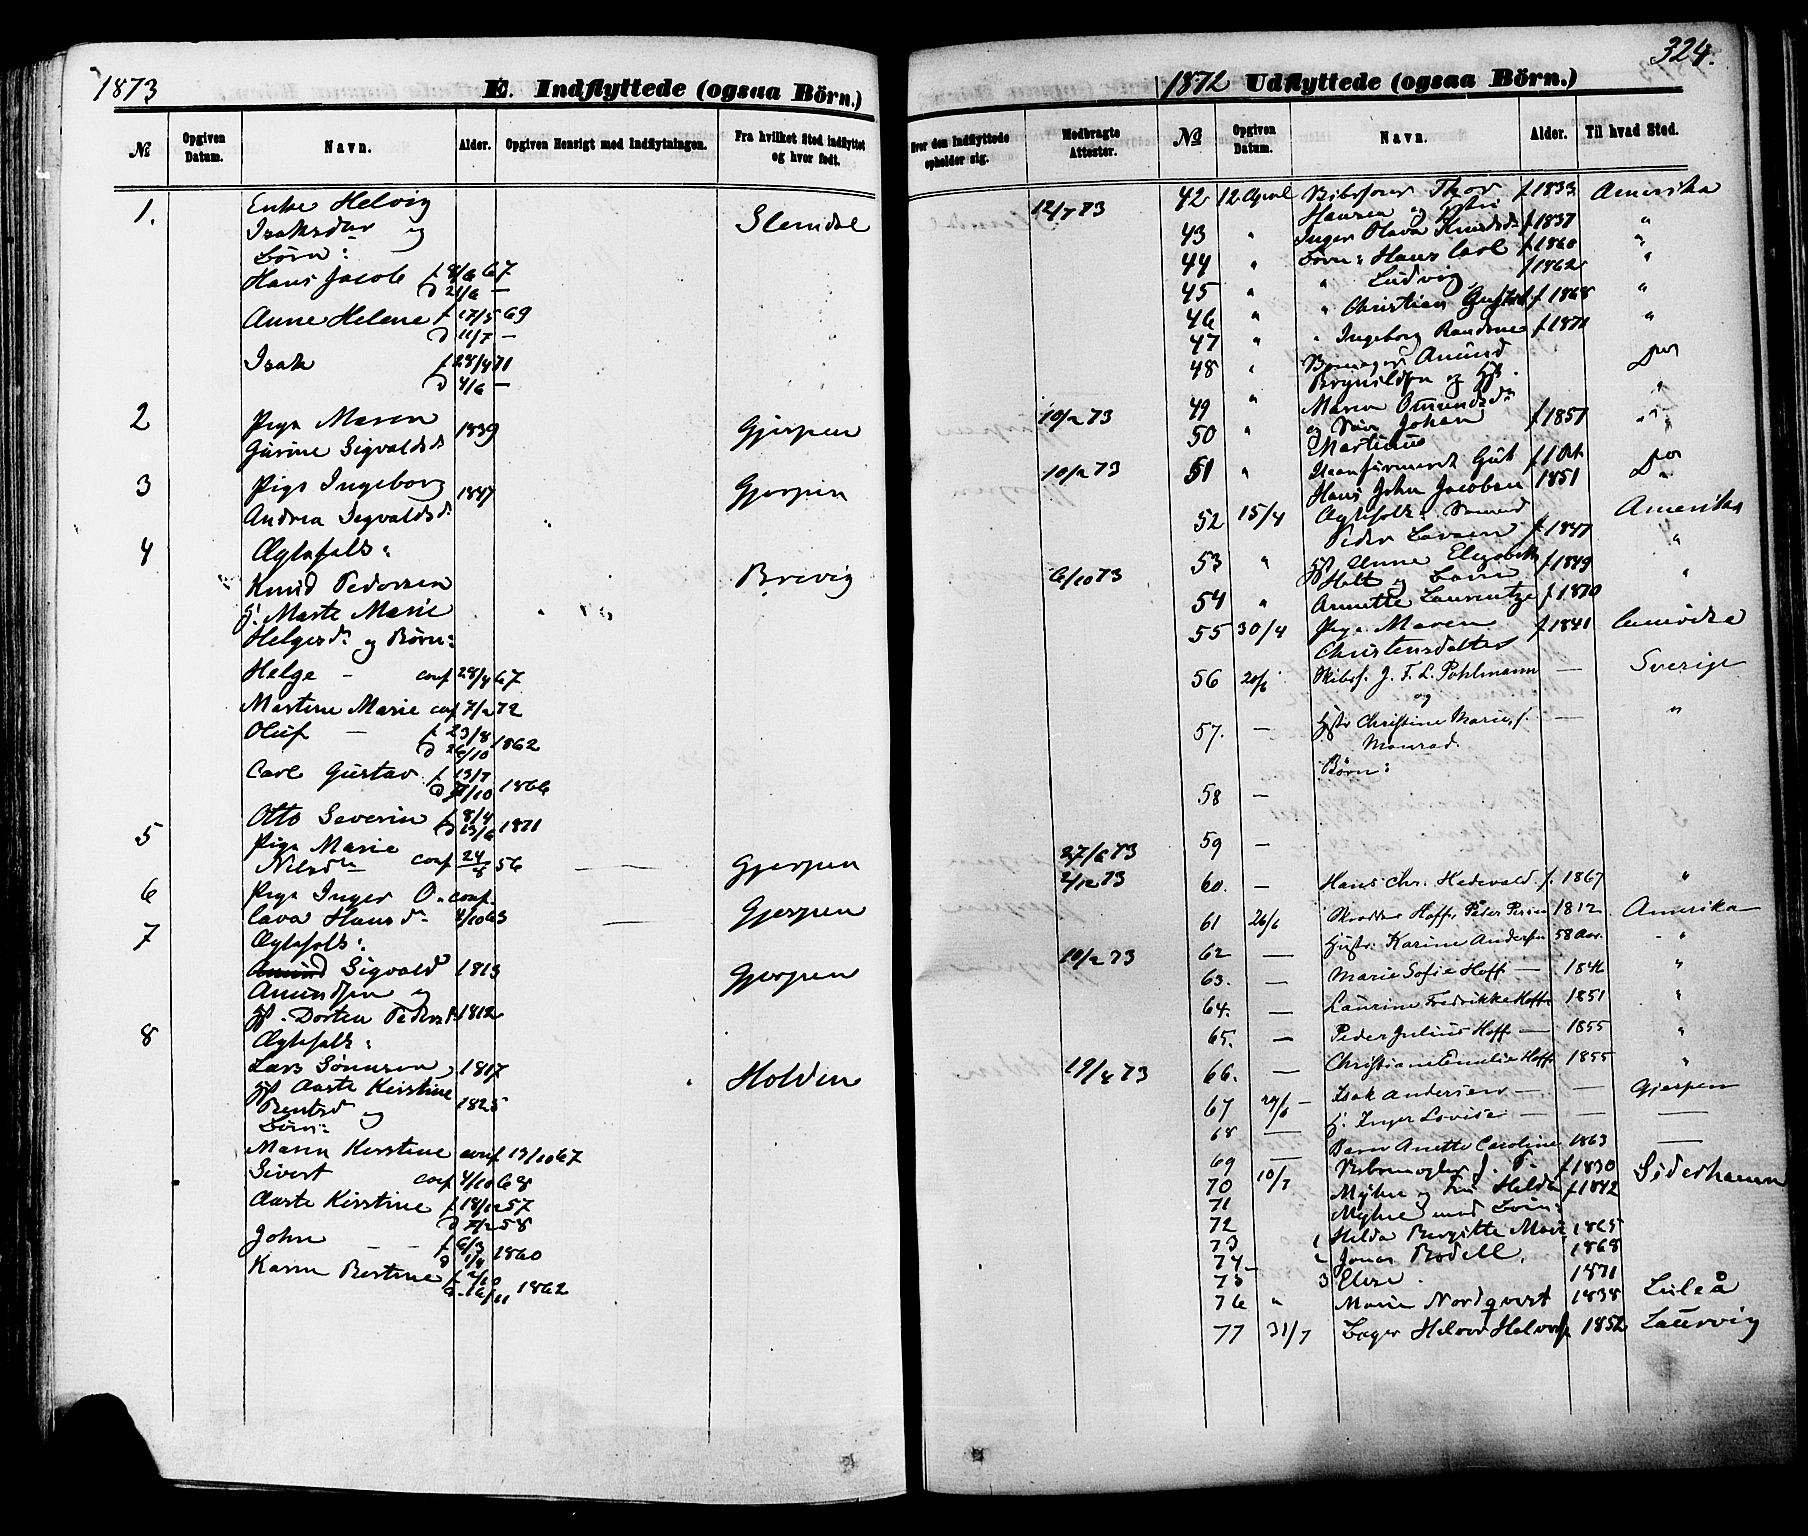 1873
E. Indflyttede (ogsaa Börn.)
№
Opgiven Datum.
Navn.
Alder.
Opgiven Hensigt med Indflytningen.
Fra hvilket Sted indflyttet og hvor født.
1. Enke Helvig Slemdal
Isaksdtr og
Børn:
Hans Jacob f 8/6 67
d 21/6 —
Anne Helene f 17/5 69
d 11/7 —
Isak f 28/4 71
d 4/6 —
2 Pige Maren
Gurine Sigvaldsd. 1839 Gjerpen
3 Pige Ingeborg 1847 Gjerpen
Andrea Sigvaldsd. "
4 Ægtefolk:
Knud Pedersen Brevig
H. Marte Marie "
Helgesd. og Børn:
Helge — conf 28/4 67
Martine Marie conf 7/2 72
Oluf — f 23/8
d 26/10 1862
Carl Gustav f 13/7
d /10 1866
Otto Severin f 8/4
d 13/6 1871
5 Pige Marie
Nilsdtr conf 24/8 56 — Gjerpen
6 Pige Inger O- conf.
lava Hansd. 4/10 63 — Gjerpen
7 Ægtefolk:
Sigvald 1813 Gjerpen
Amundsen og
H. Dorten Pedersd. 1812
8 Ægtefolk:
Lars Simonsen 1817 " Holden
H. Aaste Kirstine
Bentsd og 1825
Børn:
Maren Kirstine conf 13/10 67
Sivert conf 4/10 68
Aaste Kirstine f 18/12 57
d 7/2 58
John — f 6/3
d 1/4 1860
Karen Bertine f 2/10
d. 16/11 1862
324.
1872 Udflyttede (ogsaa Börn.)
Hvor den Indflyttede opholder sig.
Medbragte Attester.
№
Opgiven Datum.
Navn.
Alder.
Til hvad Sted.
12/7 73
10/2 73
10/2 73
6/10 73
27/6 73
2/12 73
10/2 73
19/4 73
42 12 April Thor f 1833 Amerika
Hansen og Hstr
43 " Inger Olava Knudsd. f 1837 "
44 " Børn: Hans Carl f 1860 "
45 " " Ludvig f 1862 "
46 " " Christian Gustav f 1868 "
47 " " Ingeborg Randine f 1871 "
48 " Amund Do
Brynildsen og H.
49 " Maren Omundsd. "
50 " og Søn Johan f 1857 "
Martinus
51 " Ukonfirmeret Gut f 1 Oct. Do
Hans John Jacobsen 1851 "
52 15/4 Ægtefolk: Amerika
Peder Larsen f 1847 "
53 " H. Anne Elizabeth f 1849
Holt og Barn "
54 " Annette Laurentze f 1870
55 30/4 Pige Maren f 1841 Amerika
Christensdatter
56 20/6 Skibsf. J. F. L. Pohlmann — Sverige
og
57. — Hstr Christine Marie, f. — "
Monrad.
Børn:
58 —
59 —
60. — Hans Chr. Hedevald f. 1867 "
61 26/6 Hoff, Peder 1812 Amerika
62 — Hustr. Karine Andersen 58 Aar. "
63. — Marie Sofie Hoff — 1846 "
64. — Laurine Fredrikke Hoff 1851 "
65. — Peder Julius Hoff — 1855 "
66. — Christian Emelie Hoff 1855 "
67 29/6 — Isak Andersen — — Gjerpen
68 — H. Inger Lovise — — —
69 — Barn Anette Caroline 1863 —
70 10/7 J. P. f 1830 Söderhamn
71 Myhre og Fru Hilda f 1842
72 Myhre med Børn:
73 1 Hilda Birgitte Marie 1865
74 2 Jonas Bodell. 1868
75 3 Elise. 1871
76 " Marie Nordqvist 1838 Luleå
77 31/7 Bager Helvor Helvors. 1852 Laurvig